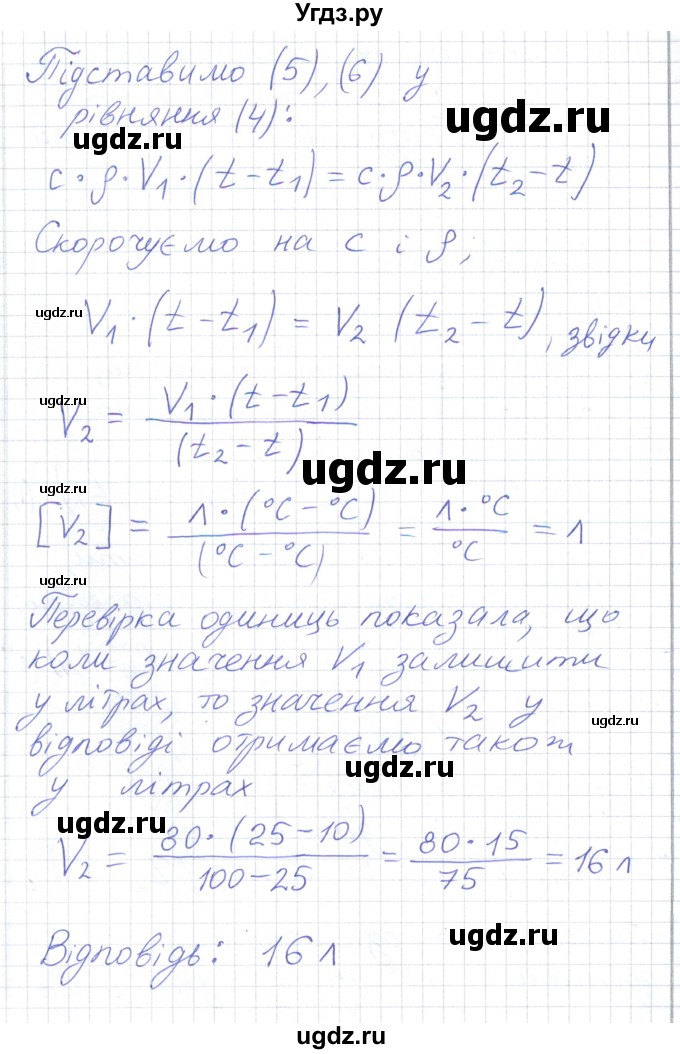 Угдз.ру
Підставимо (5),(6) у
рівняння (4):
ugdz.ru
ugdz.ru
c·ρ·V₁·(t-t₁)=c·ρ·V₂·(t₂-t)
Скорочуємо на c і ρ;
ugdz.ru
V₁·(t-t₁) = V₂ (t₂-t), звідки
ugdz.ru
V₂ = V₁·(t-t₁) / (t₂-t)
ugdz.ru
[V₂] = л·(°C-°C) / (°C-°C) = л·°C / °C = л
ugdz.ru
Перевірка одиниць показала, що
коли значення V₁ залишити
у літрах, то значення V₂ у
ugdz.ru
відповіді отримаємо також
ugdz.ru
у літрах
ugdz.ru
V₂ = 80·(25-10) / 100-25 = 80·15 / 75 = 16 л
Відповідь: 16 л
ugdz.ru
ugdz.ru